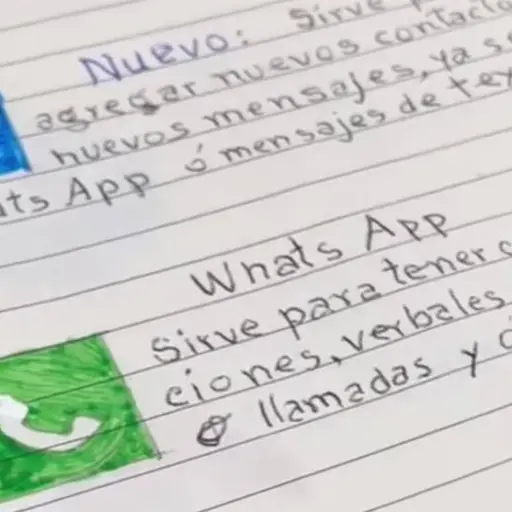 Nuevo: Sirve
agregar nuevos contacto
nuevos mensajes, ya s
ts App ó mensajes de tex
Whats App
Sirve para tener c
ciones, verbales
llamadas y